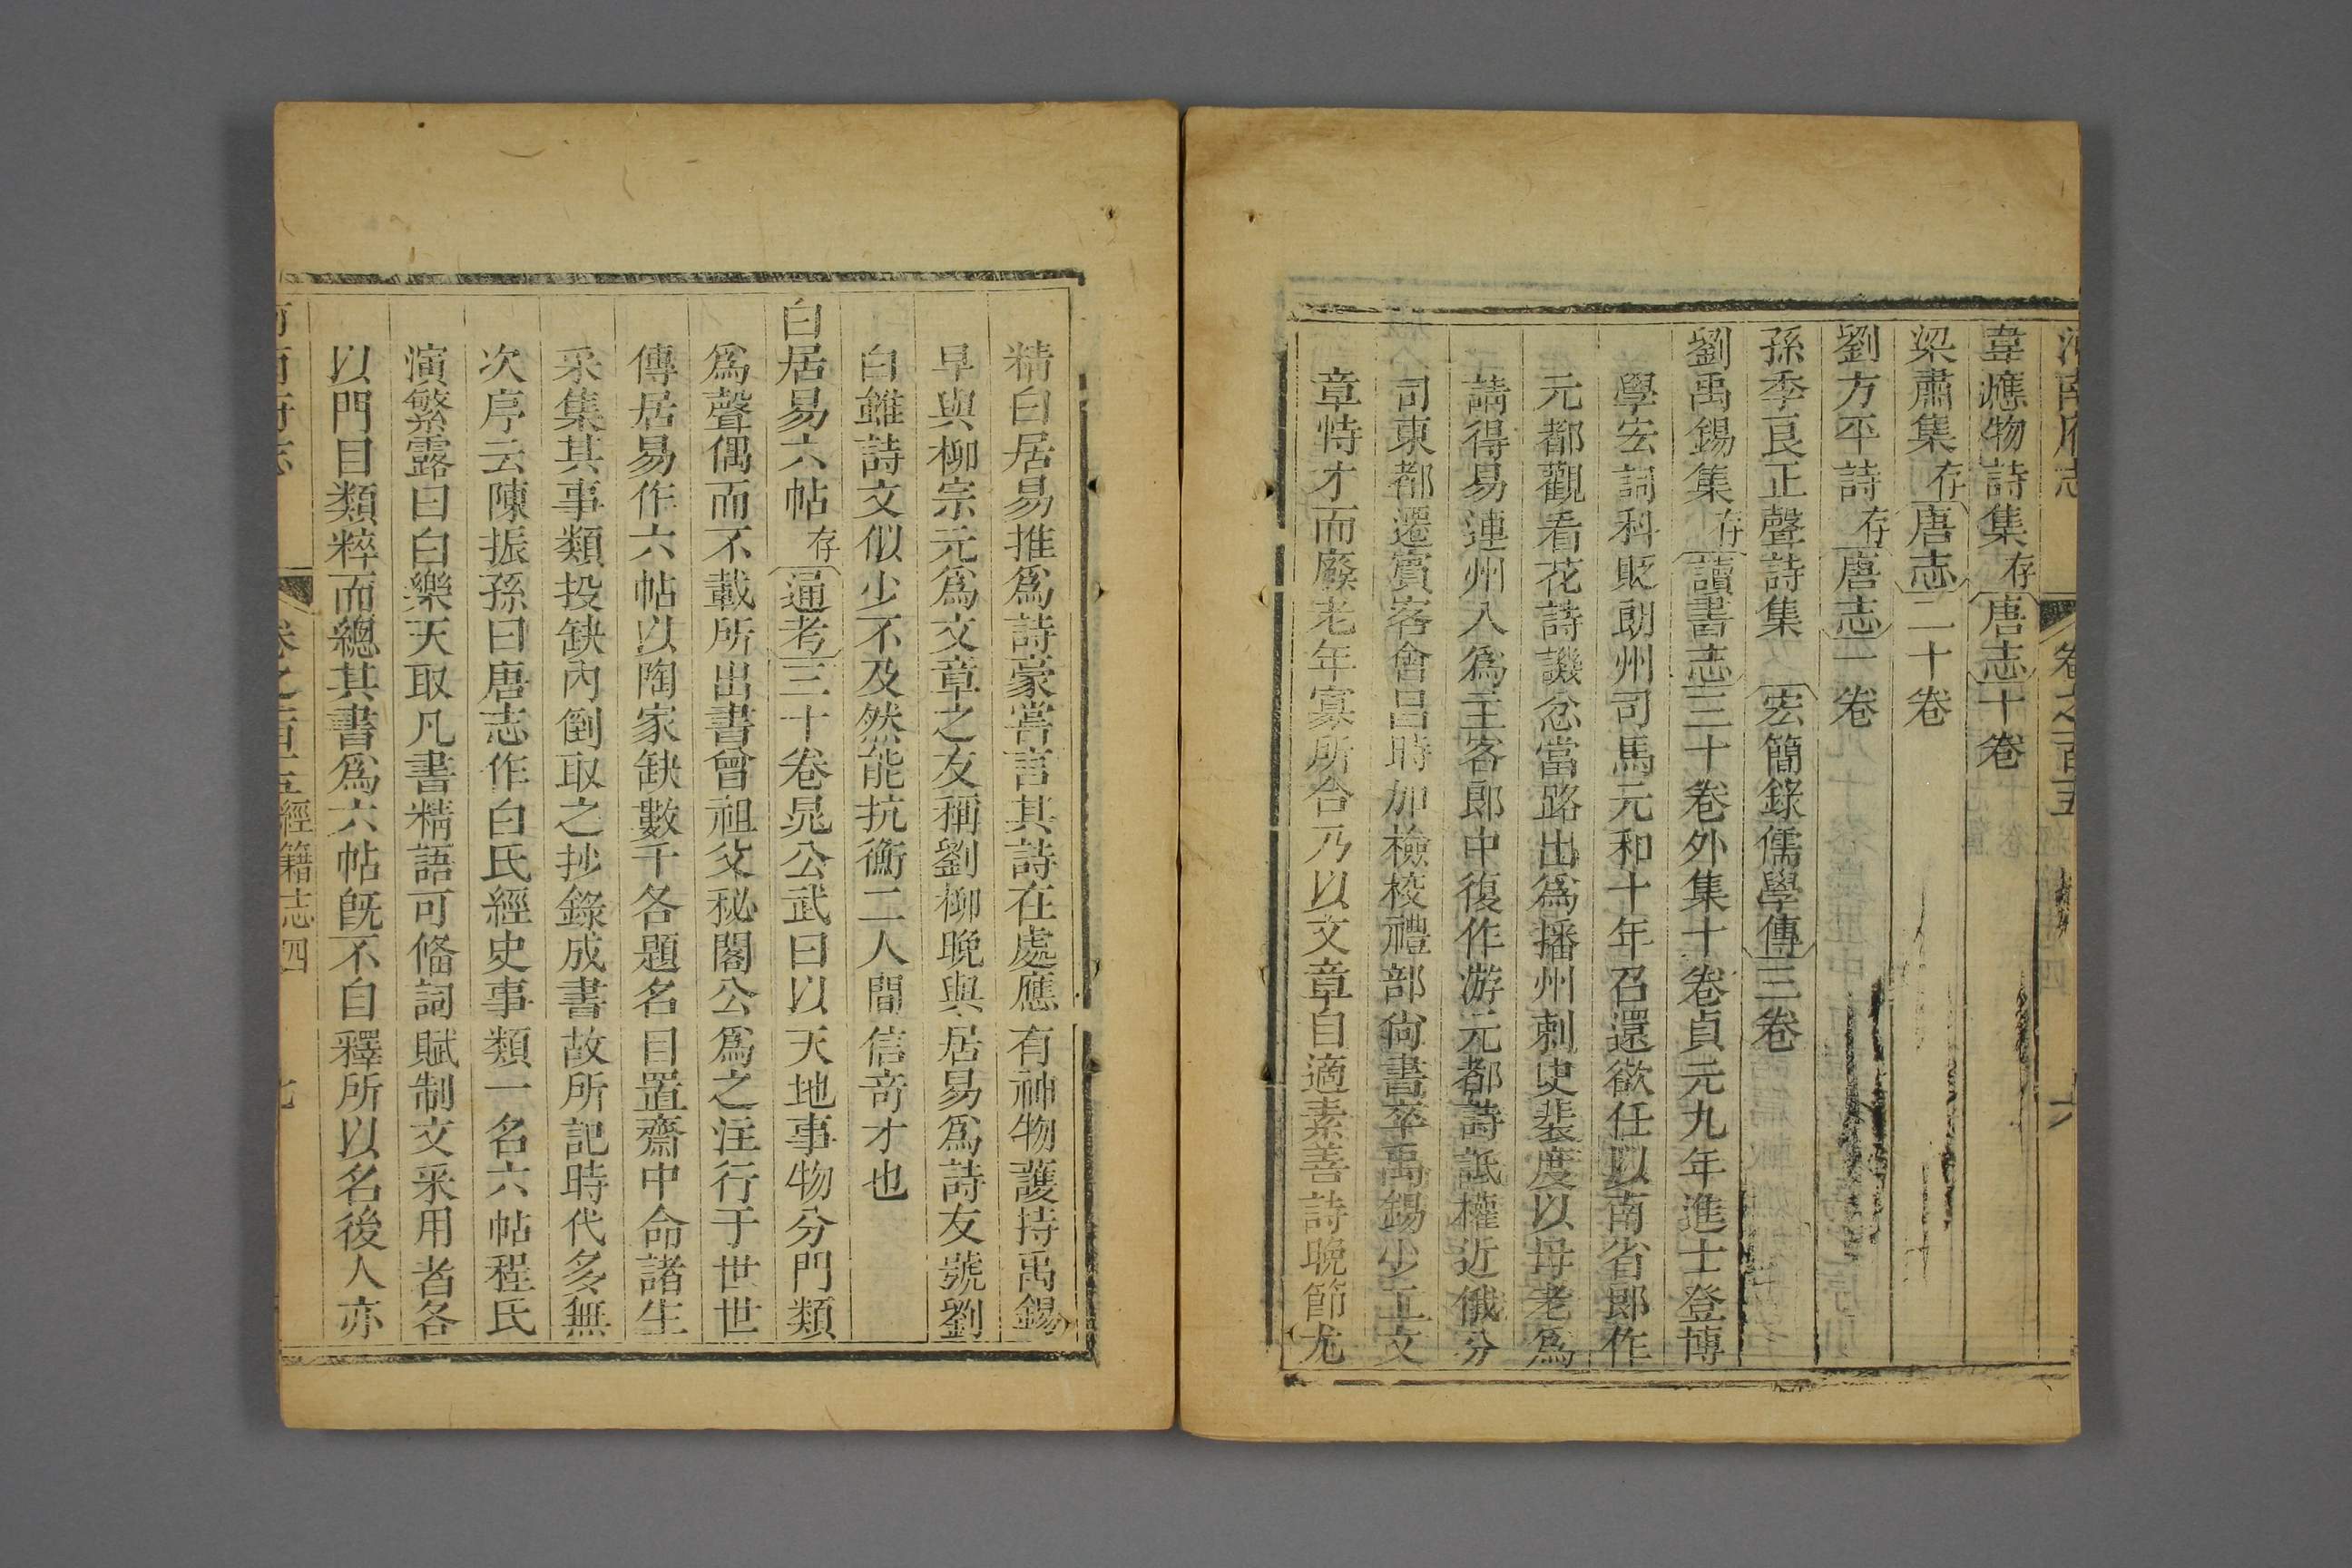 河南府志 卷之百五 六
韋應物詩集存唐志十卷
梁肅集存唐志二十卷
劉方平詩存唐志一卷
孫季良正聲詩集 宏簡錄儒學傳三卷
劉禹錫集存讀書志三十卷外集十卷貞元九年進士登博
學宏詞科貶朗州司馬元和十年召還欲任以南省郎作
元都觀看花詩譏忿當路出爲播州刺史裴度以母老爲
請得易連州入爲主客郎中復作游元都詩詆權近俄分
司東都遷賓客會昌時加檢校禮部尙書卒禹錫少工文
章恃才而廢老年寡所合乃以文章自適素善詩晚節尤
精白居易推爲詩豪嘗言其詩在處應有神物護持禹錫
早與柳宗元爲文章之友稱劉柳晚與居易爲詩友號劉
白雖詩文似少不及然能抗衡二人間信奇才也
白居易六帖存通考三十卷晁公武曰以天地事物分門類
爲聲偶而不載所出書曾祖父秘閣公爲之注行于世世
傳居易作六帖以陶家缺數千各題名目置齋中命諸生
采集其事類投缺內倒取之抄錄成書故所記時代多無
次序云陳振孫曰唐志作白氏經史事類一名六帖程氏
演繁露曰白樂天取凡書精語可偹詞賦制文采用者各
以門目類粹而總其書爲六帖旣不自釋所以名後人亦
河南府志 卷之百五經籍志四 七